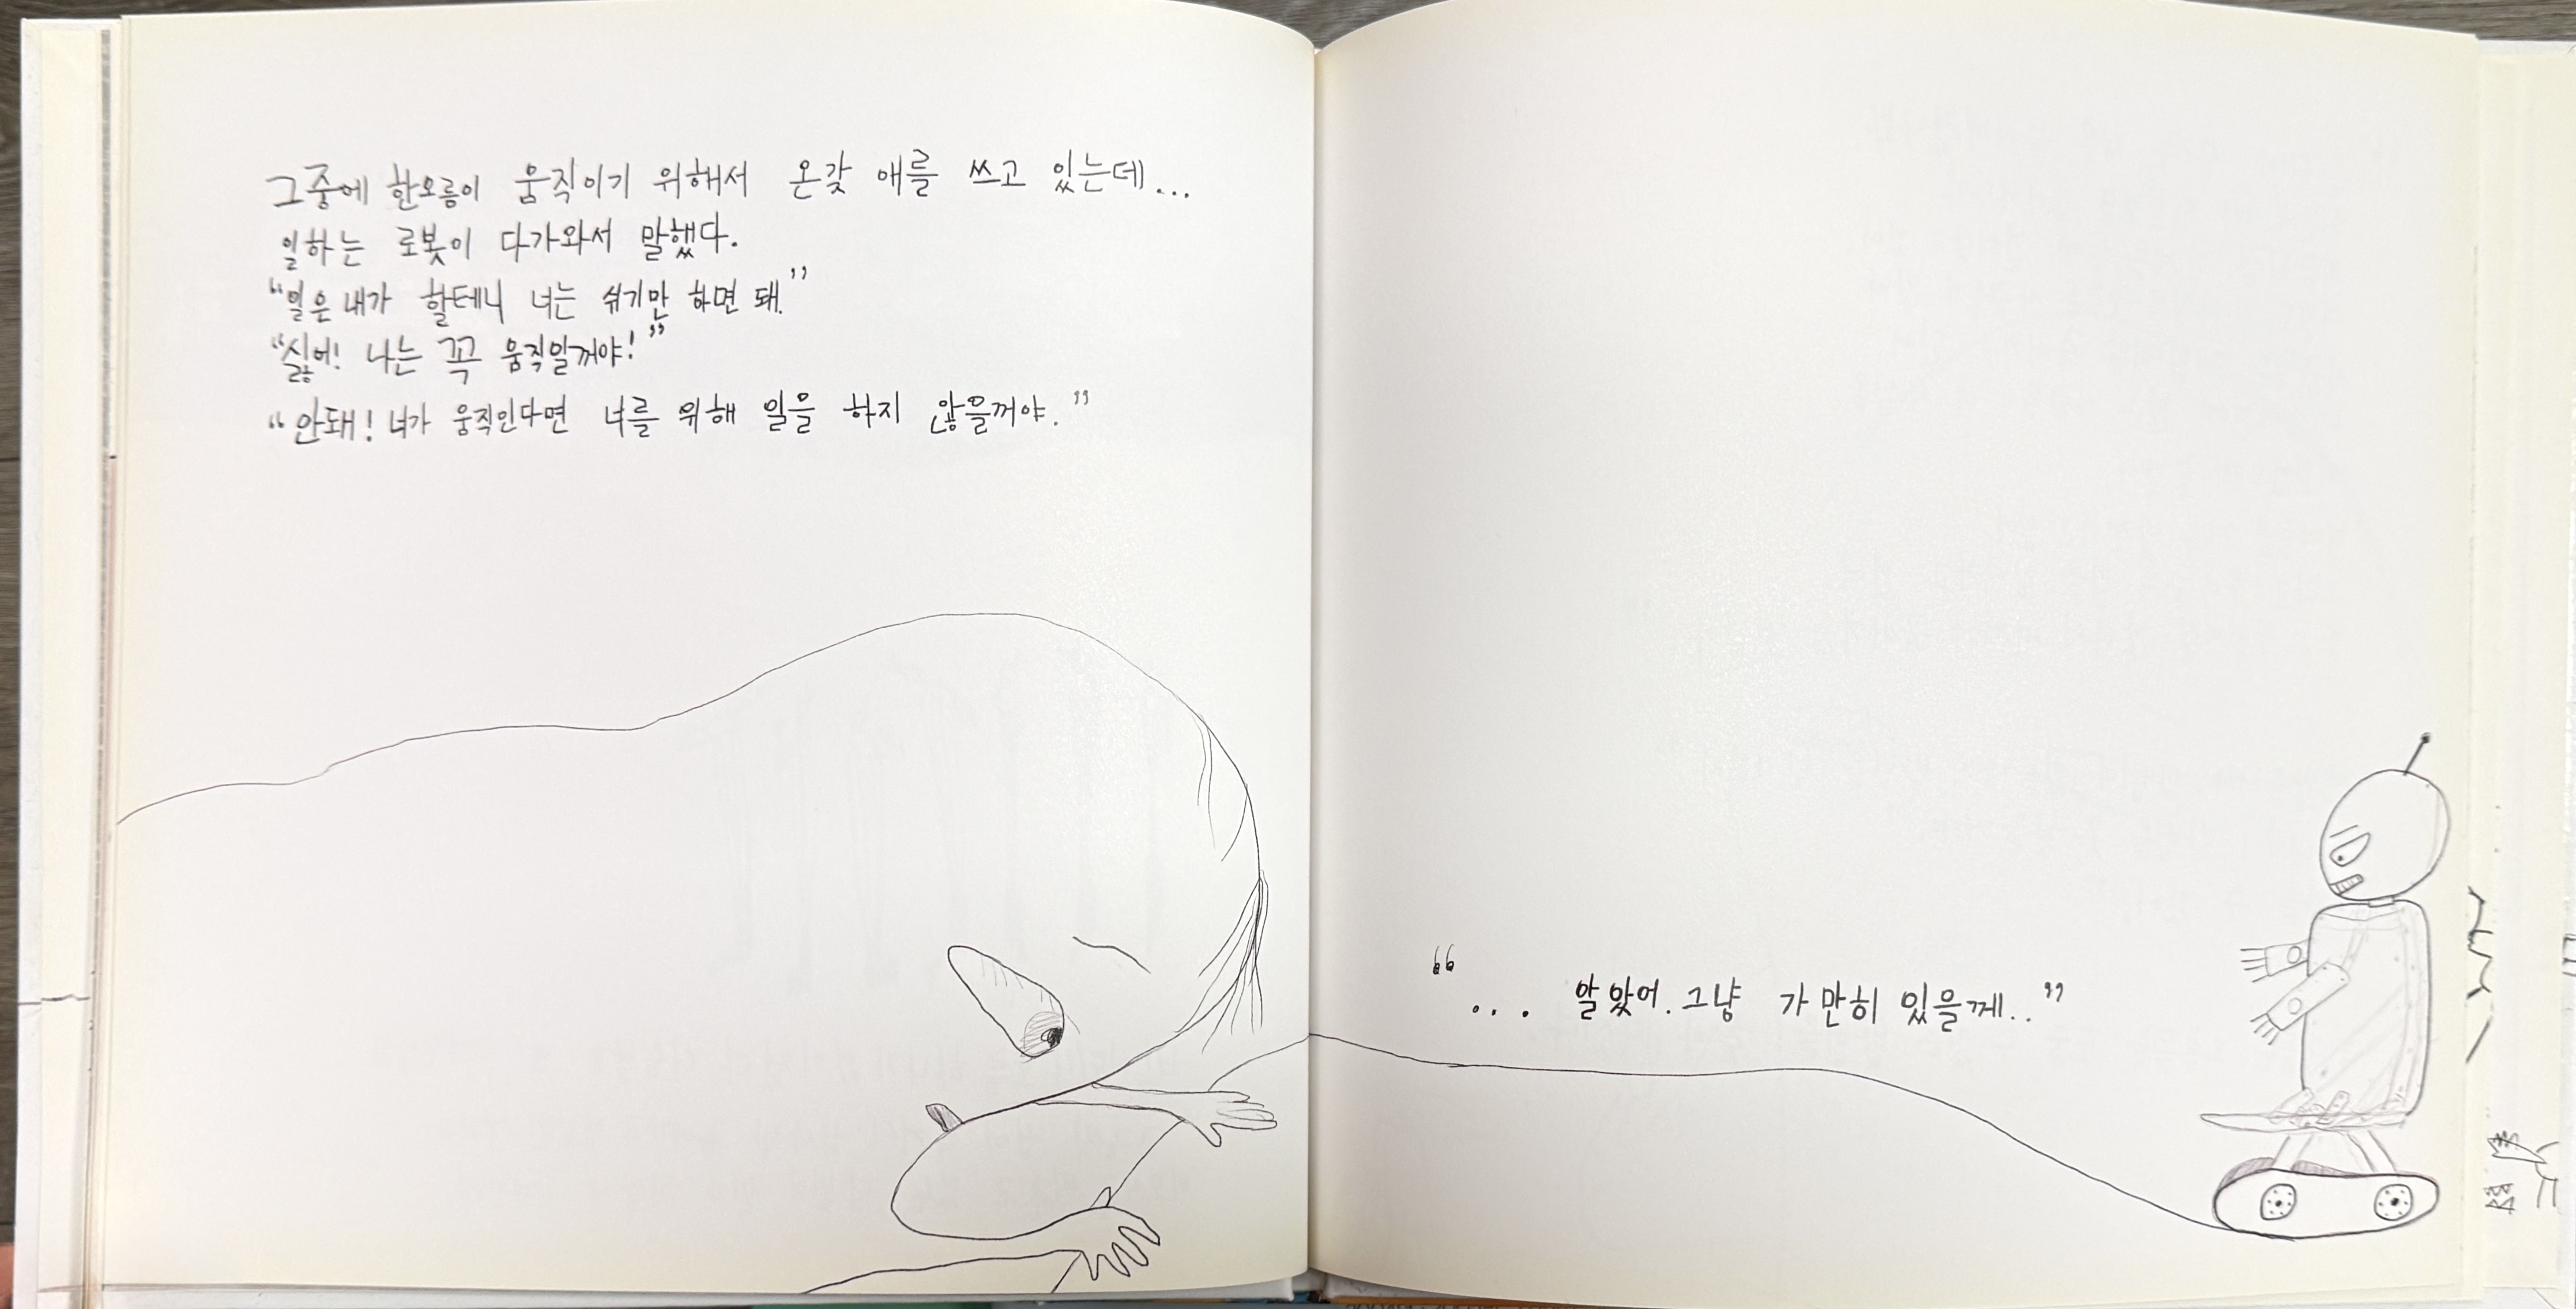 그중에 한오름이 움직이기 위해서 온갖 애를 쓰고 있는데...
일하는 로봇이 다가와서 말했다.
“일은 내가 할테니 너는 쉬기만 하면 돼.”
“싫어! 나는 꼭 움직일꺼야!”
“안돼! 너가 움직인다면 너를 위해 일을 하지 않을꺼야.”
“... 알았어. 그냥 가만히 있을께..”